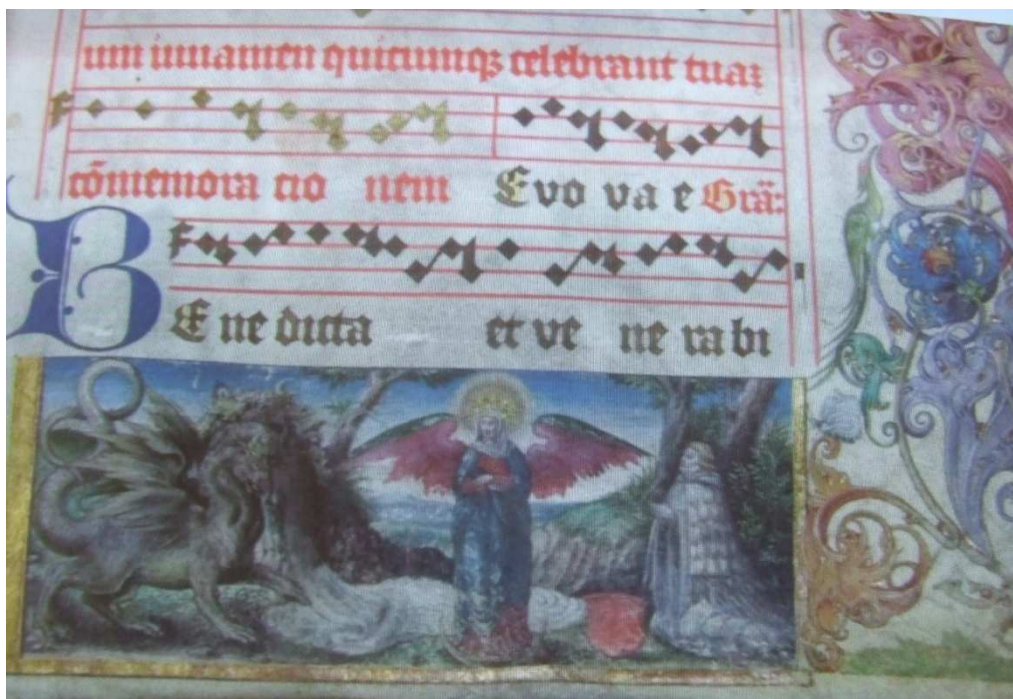 um iuuamen quicumqꝫ celebrant tuaꝫ
cõmemora tio nem Evo va e Grã:
BE ne dicta et ve ne ra bi